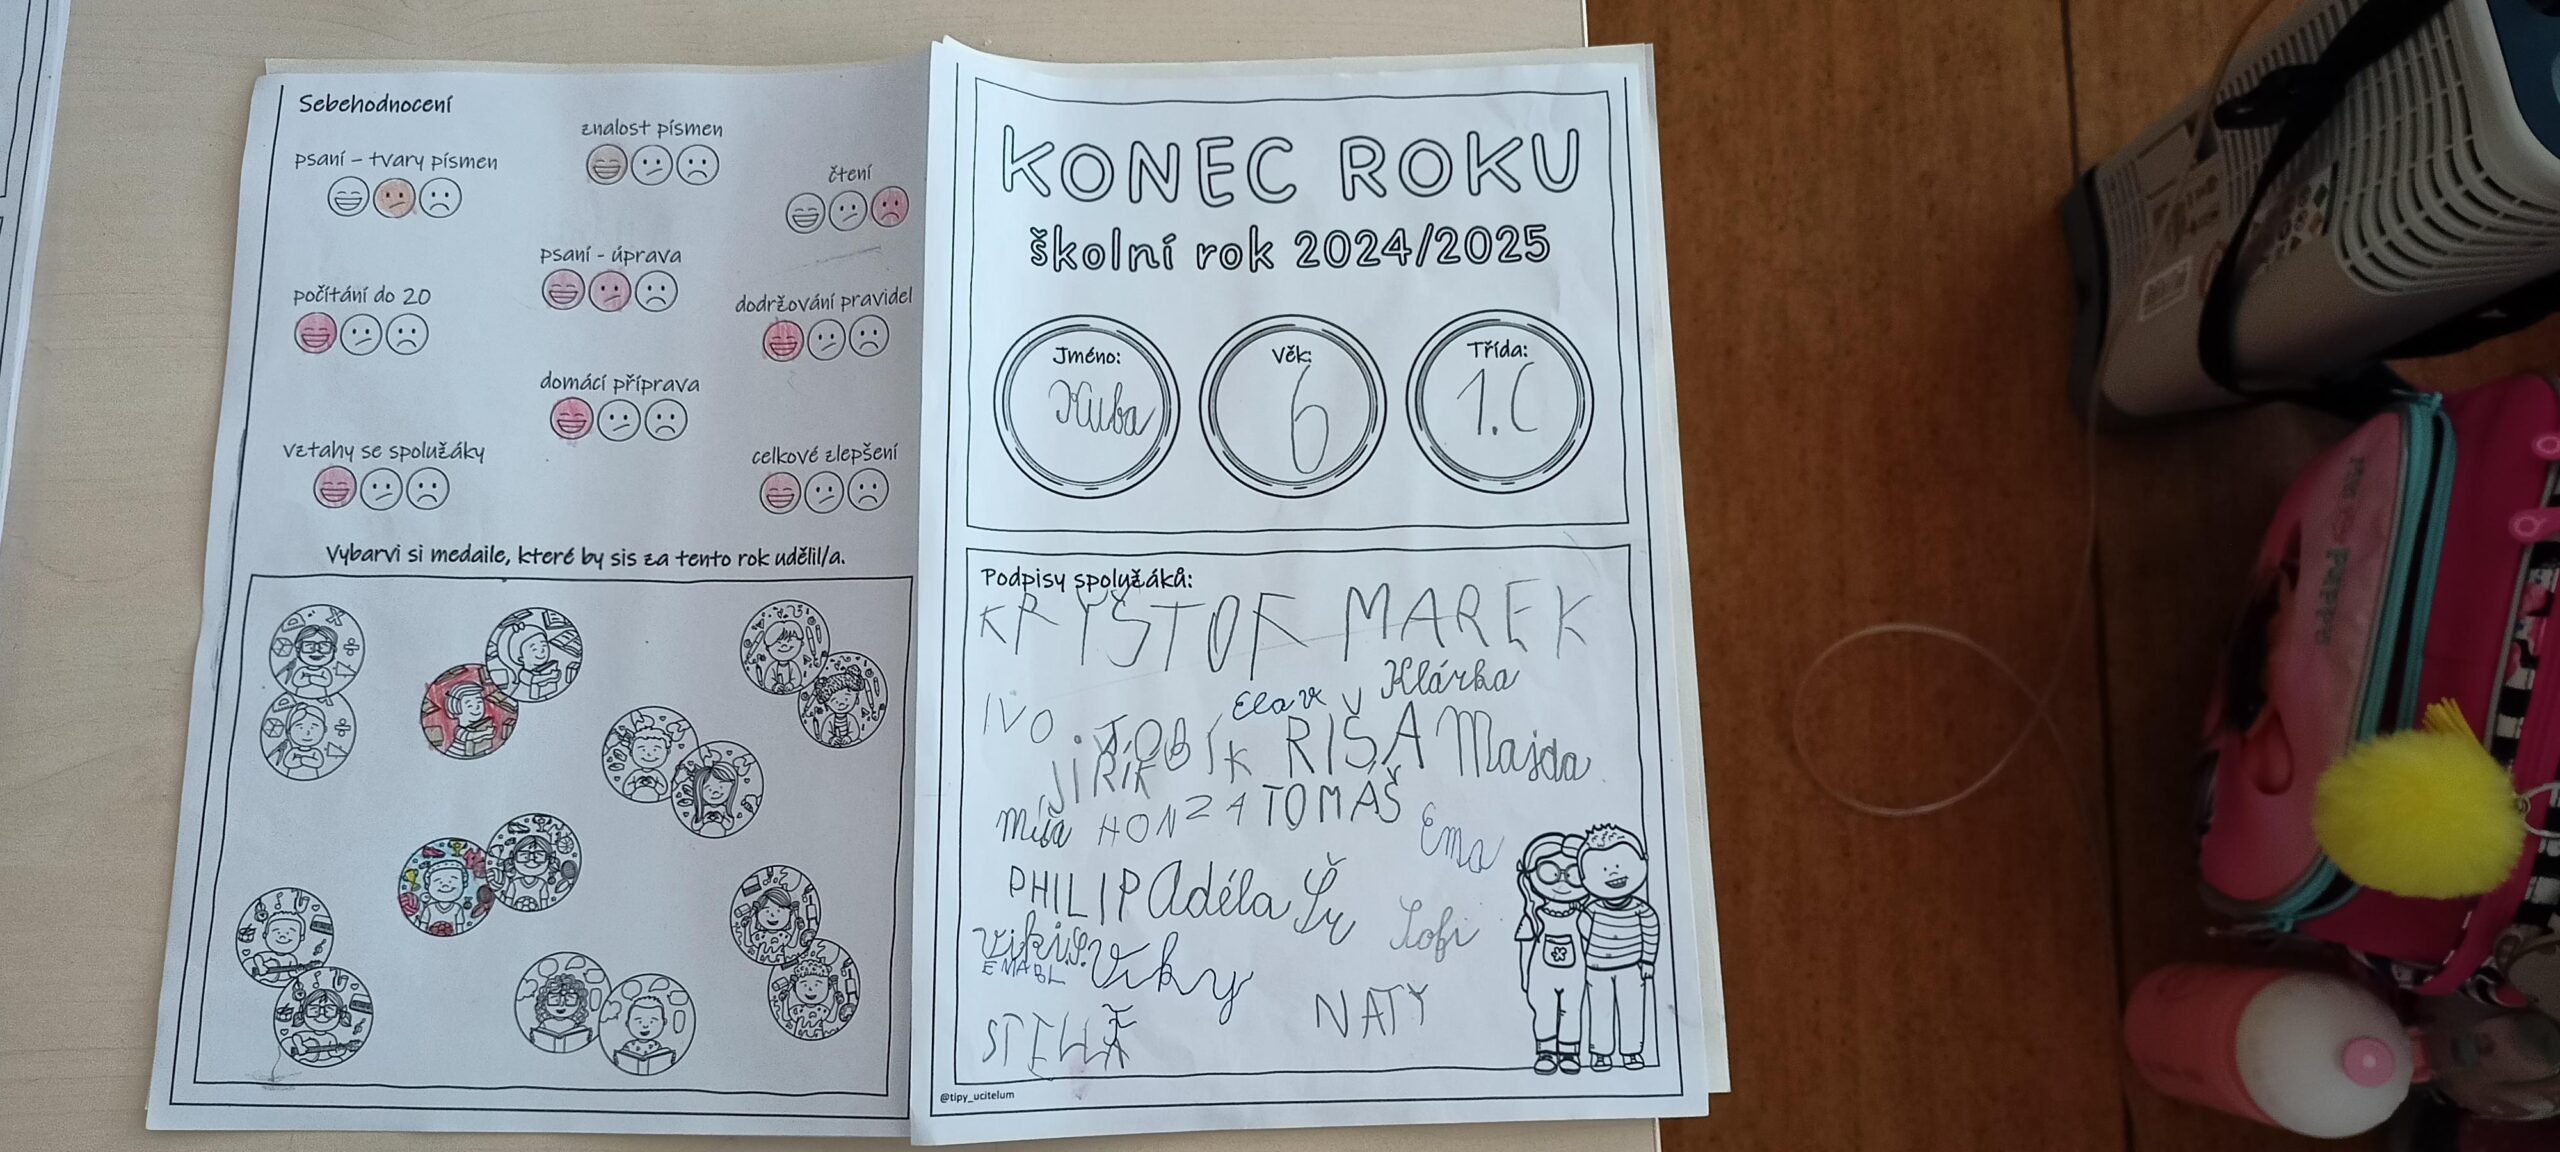 Sebehodnocení
znalost písmen
psaní - tvary písmen
čtení
psaní - úprava
počítání do 20
dodržování pravidel
domácí příprava
vztahy se spolužáky
celkové zlepšení
Vybarvi si medaile, které by sis za tento rok udělil/a.
KONEC ROKU
školní rok 2024/2025
Jméno: Věk: Třída:
Kuba 6 1.C
Podpisy spolužáků:
KRYŠTOF MAREK
Klárka
IVO TOBÍK RÍŠA Majda
JIŘÍK
Mia HONZA TOMÁŠ Ema
PHILIP Adéla
Sofi
Viki.S. Viky
EMABL
STELLA NATY
@tipy_ucitelum